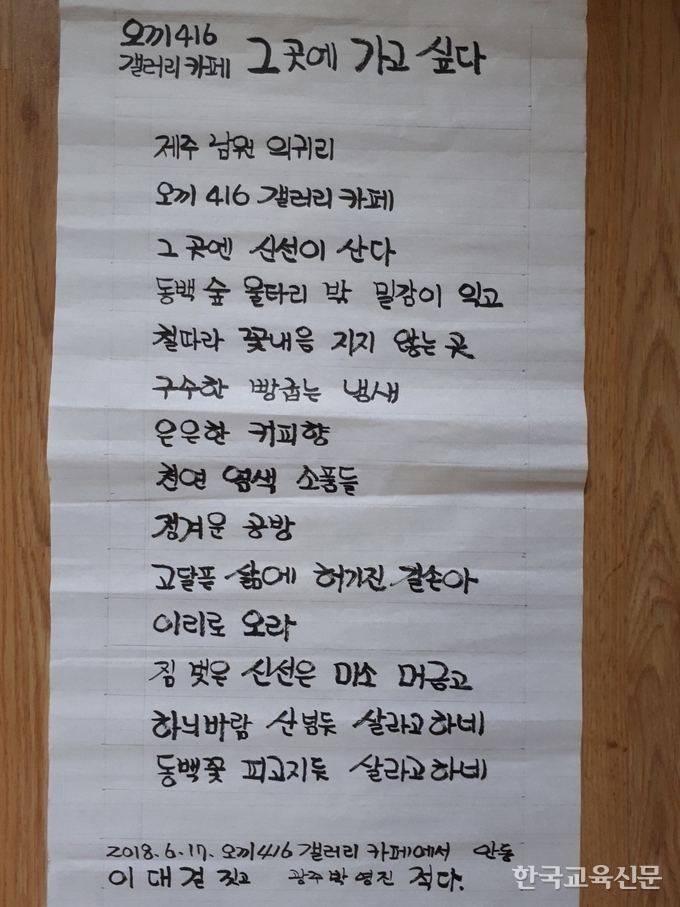 오끼416
갤러리카페 그곳에 가고 싶다
제주 남원 의귀리
오끼 416 갤러리 카페
그 곳엔 신선이 산다
동백 숲 울타리 밖 밀감이 익고
철따라 꽃내음 지지 않는 곳
구수한 빵굽는 냄새
은은한 커피향
천연 염색 소품들
정겨운 공방
고달픈 삶에 허기진 길손아
이리로 오라
짐 벗은 신선은 미소 머금고
하늬바람 산넘듯 살라고하네
동백꽃 피고지듯 살라고하네
2018.6.17. 오끼416 갤러리 카페에서 안동
이대걸 짓고 광주 박영진 적다.
한국교육신문